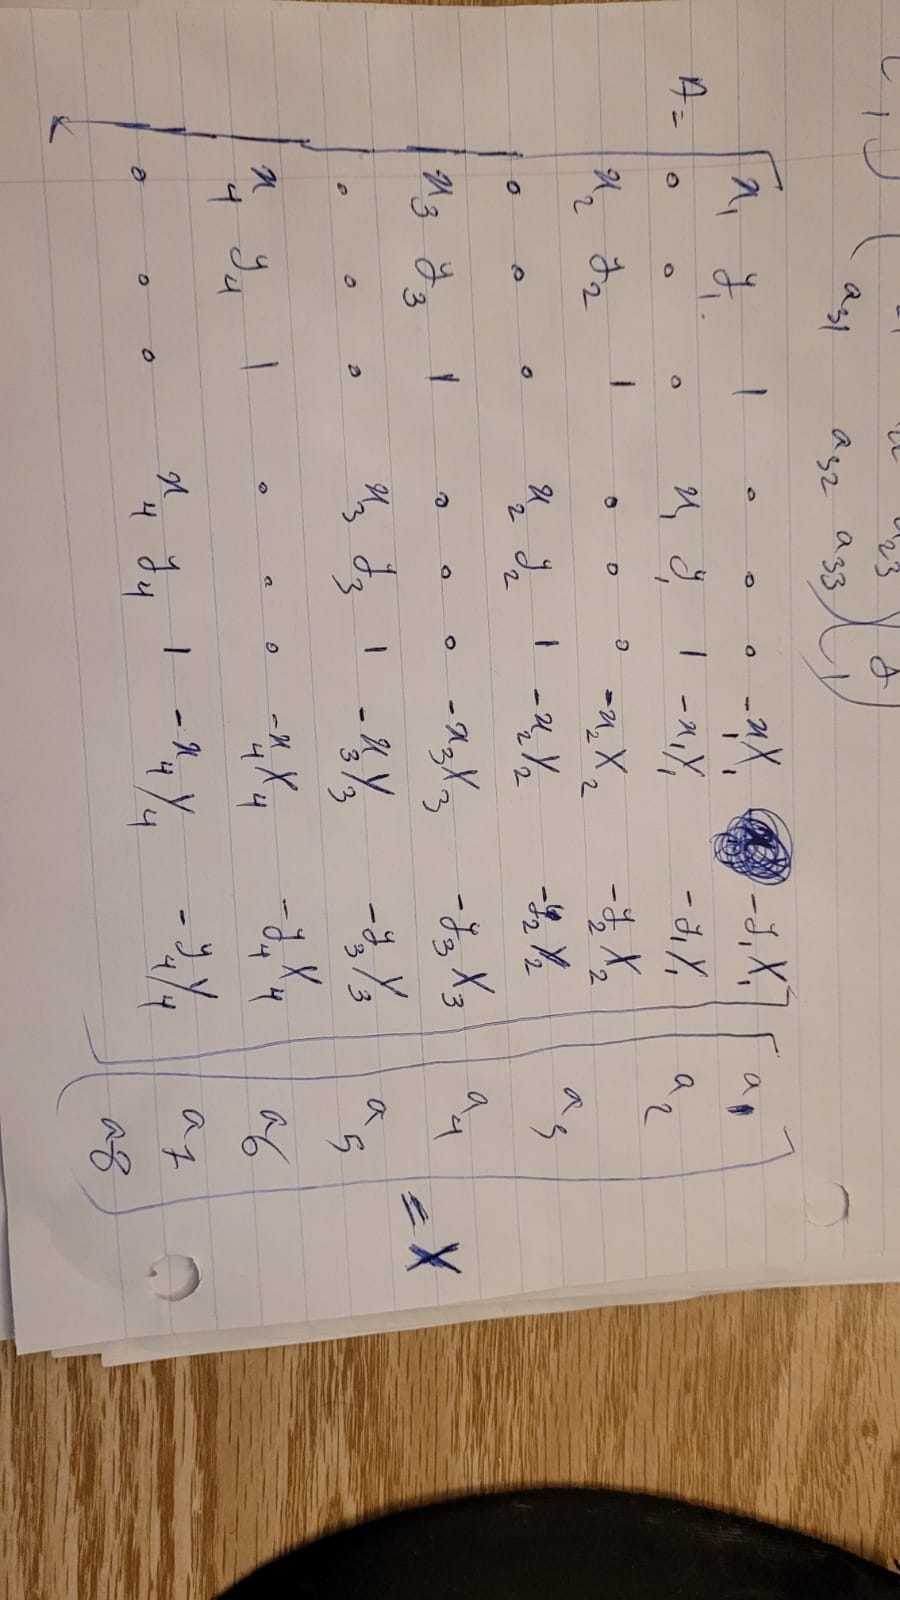 a23 y
a31 a32 a33 1
x1 y1 1 0 0 0 -x1X1 -y1X1 a1
A= 0 0 0 x1 y1 1 -x1Y1 -y1Y1 a2
x2 y2 1 0 0 0 -x2X2 -y2X2
0 0 0 x2 y2 1 -x2Y2 -y2Y2 a3
x3 y3 1 0 0 0 -x3X3 -y3X3 a4
= X
0 0 0 x3 y3 1 -x3Y3 -y3Y3 a5
x4 y4 1 0 0 0 -x4X4 -y4X4 a6
0 0 0 x4 y4 1 -x4Y4 -y4Y4 a7
a8